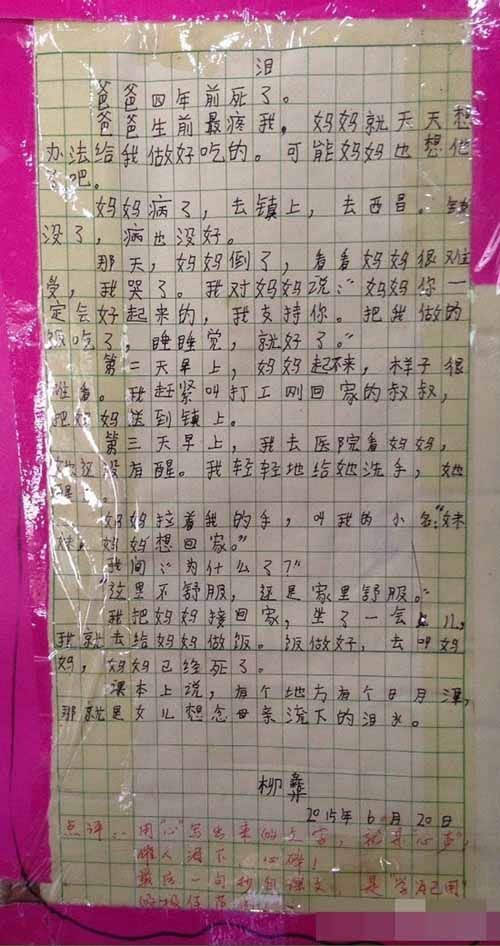 泪
爸爸四年前死了。
爸爸生前最疼我,妈妈就天天想
办法给我做好吃的。可能妈妈也想他
了吧。
妈妈病了,去镇上,去西昌。钱
没了,病也没好。
那天,妈妈倒了,看看妈妈很难
受,我哭了。我对妈妈说:“妈妈你一
定会好起来的,我支持你。把我做的
饭吃了,睡睡觉,就好了。”
第二天早上,妈妈起不来,样子很
难看。我赶紧叫打工刚回家的叔叔,
把妈妈送到镇上。
第三天早上,我去医院看妈妈,
她还没有醒。我轻轻地给她洗手,她
醒了。
妈妈拉着我的手,叫我的小名:“妹
妹,妈妈想回家。”
我问:“为什么了?”
“这里不舒服,还是家里舒服。”
我把妈妈接回家,坐了一会儿,
我就去给妈妈做饭。饭做好,去叫妈
妈,妈妈已经死了。
课本上说,有个地方有个日月潭,
那就是女儿想念母亲流下的泪水。
柳彝
2015年6月20日
点评:用“心”写出来的文字,就是“心声”,
催人泪下,心碎!
最后一句抄自课文,是“学以己用”